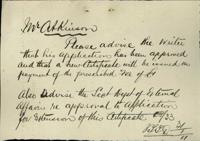 Mr Atkinson
Please advise the Writer
that his application has been approved
and that a new Certificate will be issued on
payment of the prescribed fee of £1
Also advise the Sect Dept of External
Affairs re approval to application
for Extension of this Certificate